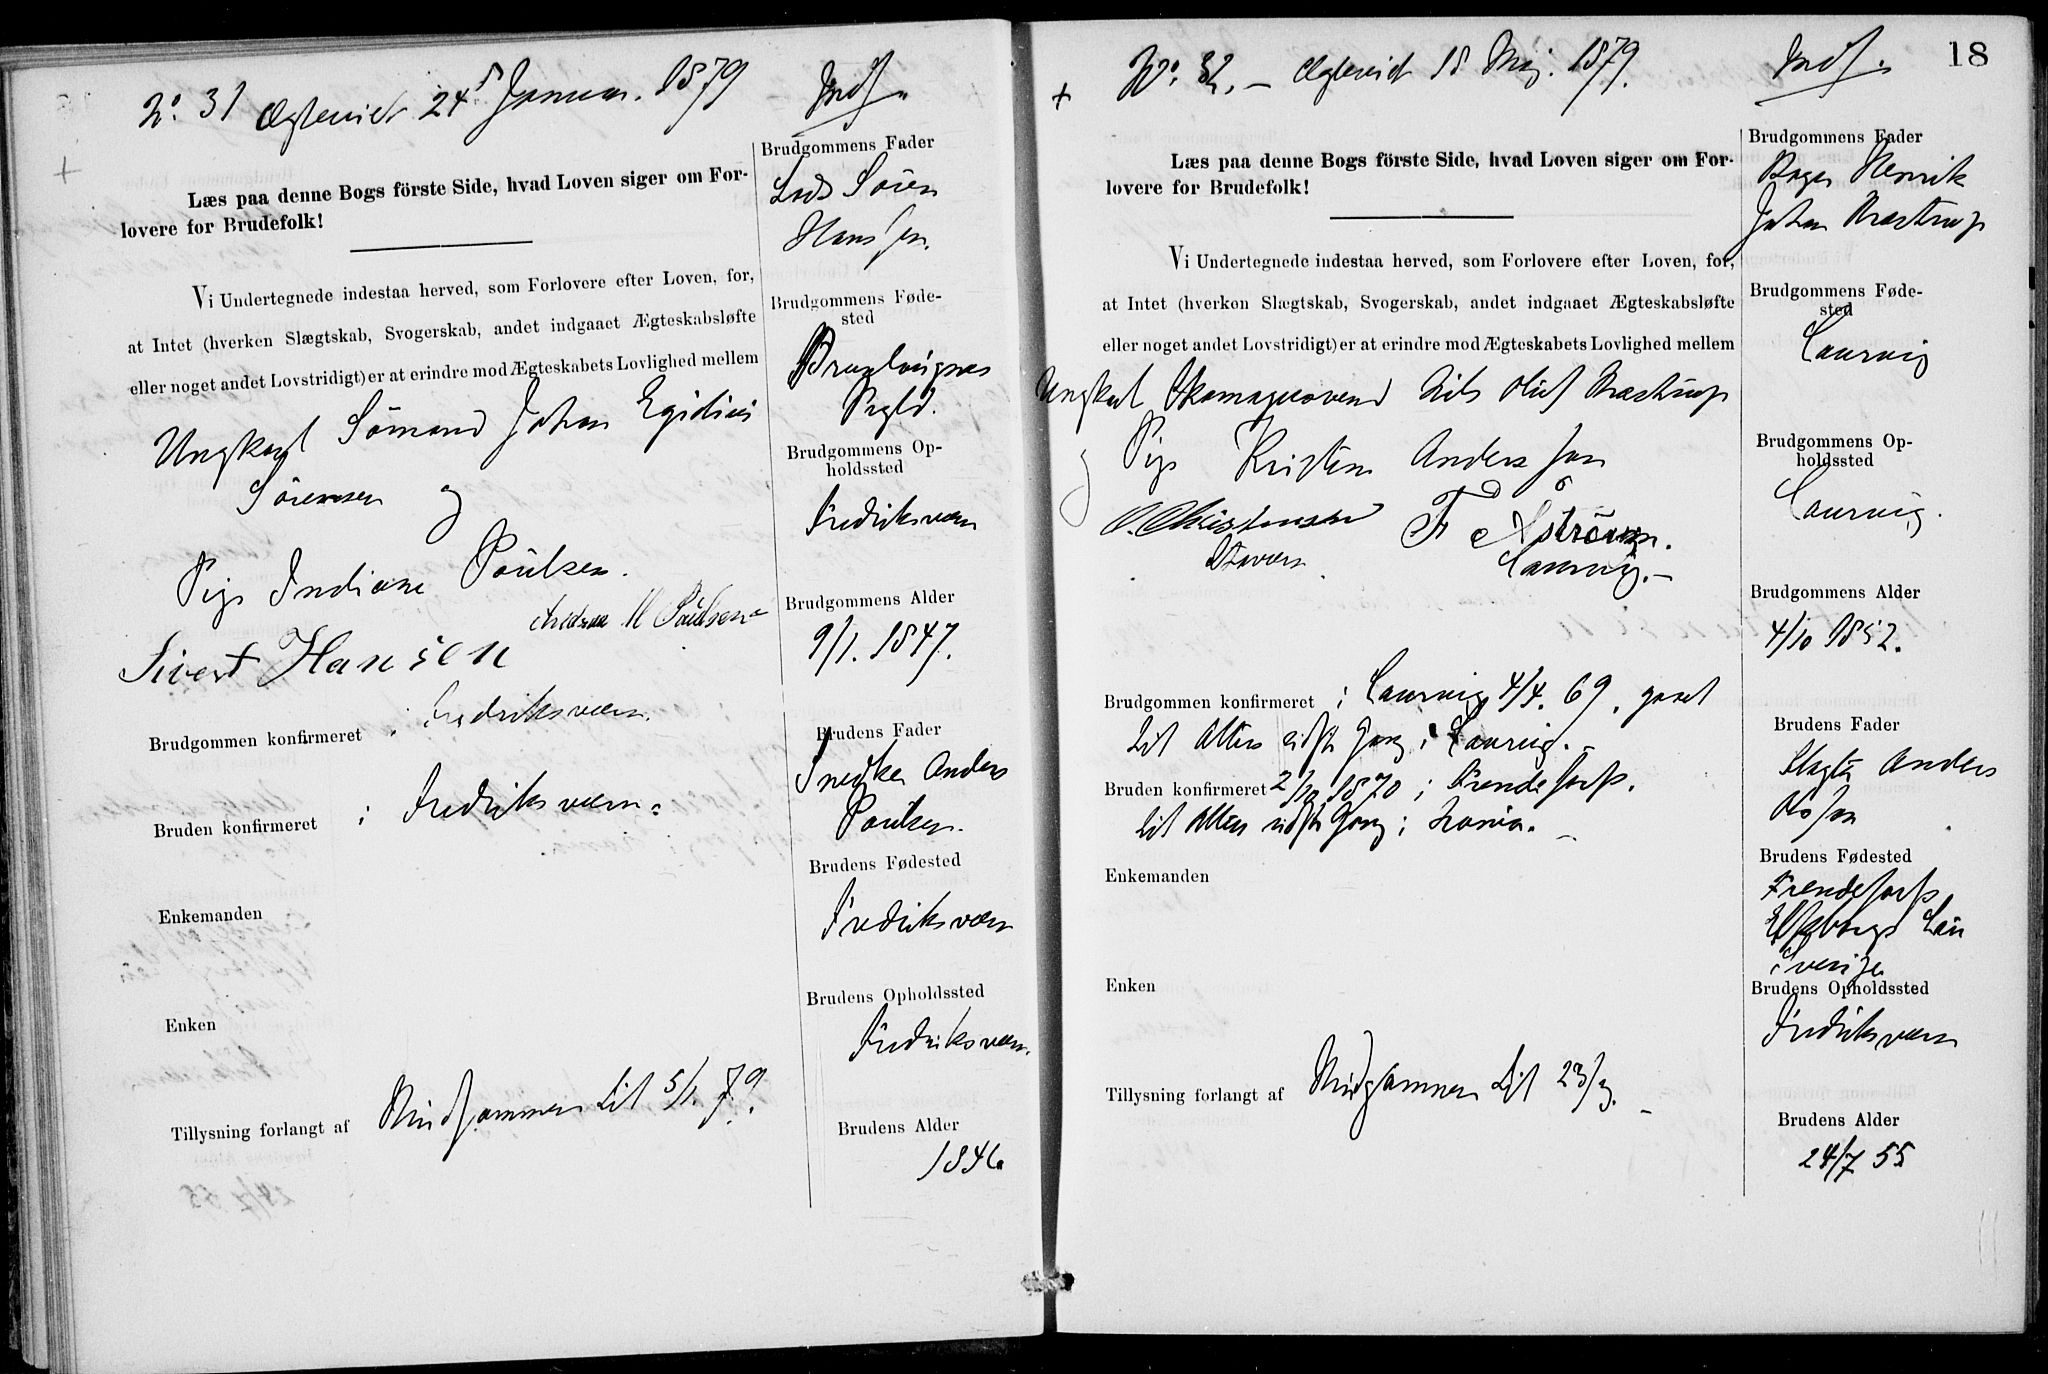 No. 31 Ægteviet 24de Januar. 1879 Indf.
Læs paa denne Bogs förste Side, hvad Loven siger om For-
lovere for Brudefolk!
Vi Undertegnede indestaa herved, som Forlovere efter Loven, for,
at Intet (hverken Slægtskab, Svogerskab, andet indgaaet Ægteskabsløfte
eller noget andet Lovstridigt) er at erindre mod Ægteskabets Lovlighed mellem
Ungkarl Sömand Johan Egidius
Sörensen og
Pige Indiane Poulsen.
Andreas M Poulsen
Sivert Hansen
Brudgommen konfirmeret i Fredriksværn.
Bruden konfirmeret i Fredriksværn.
Enkemanden
Enken
Tillysning forlangt af Brudgommen til 5/1. 79.
Brudgommens Fader
Lods Sören
Hansen.
Brudgommens Føde-
sted
Brunlaugnes
Prgld.
Brudgommens Op-
holdssted
Fredriksværn
Brudgommens Alder
9/1. 1847.
Brudens Fader
Snedker Anders
Poulsen.
Brudens Fødested
Fredriksværn
Brudens Opholdssted
Fredriksværn.
Brudens Alder
1846
18
No. 32. – Ægteviet 18 Maj. 1879. Indf.
Læs paa denne Bogs förste Side, hvad Loven siger om For-
lovere for Brudefolk!
Vi Undertegnede indestaa herved, som Forlovere efter Loven, for,
at Intet (hverken Slægtskab, Svogerskab, andet indgaaet Ægteskabsløfte
eller noget andet Lovstridigt) er at erindre mod Ægteskabets Lovlighed mellem
Ungkarl Skomagersvend Nils Oluf Næstrup
og Pige Kristin Andersson
O. Christensen F Åström.
Stavern Laurvig. –
Brudgommen konfirmeret i Laurvig 4/4. 69. gaaet
til Alters sidste Gang i Laurvig. –
Bruden konfirmeret 2/10 1870 i Frendefors.
til Alters sidste Gang i
Enkemanden
Enken
Tillysning forlangt af Brudgommen til 23/3. –
Brudgommens Fader
Bager Henrik
Johan Næstrup
Brudgommens Føde-
sted
Laurvig
Brudgommens Op-
holdssted
Laurvig.
Brudgommens Alder
4/10 1852.
Brudens Fader
Anders
Olsson
Brudens Fødested
Frendefors
Elfsborgs Län
Sverige
Brudens Opholdssted
Fredriksværn
Brudens Alder
24/7 55